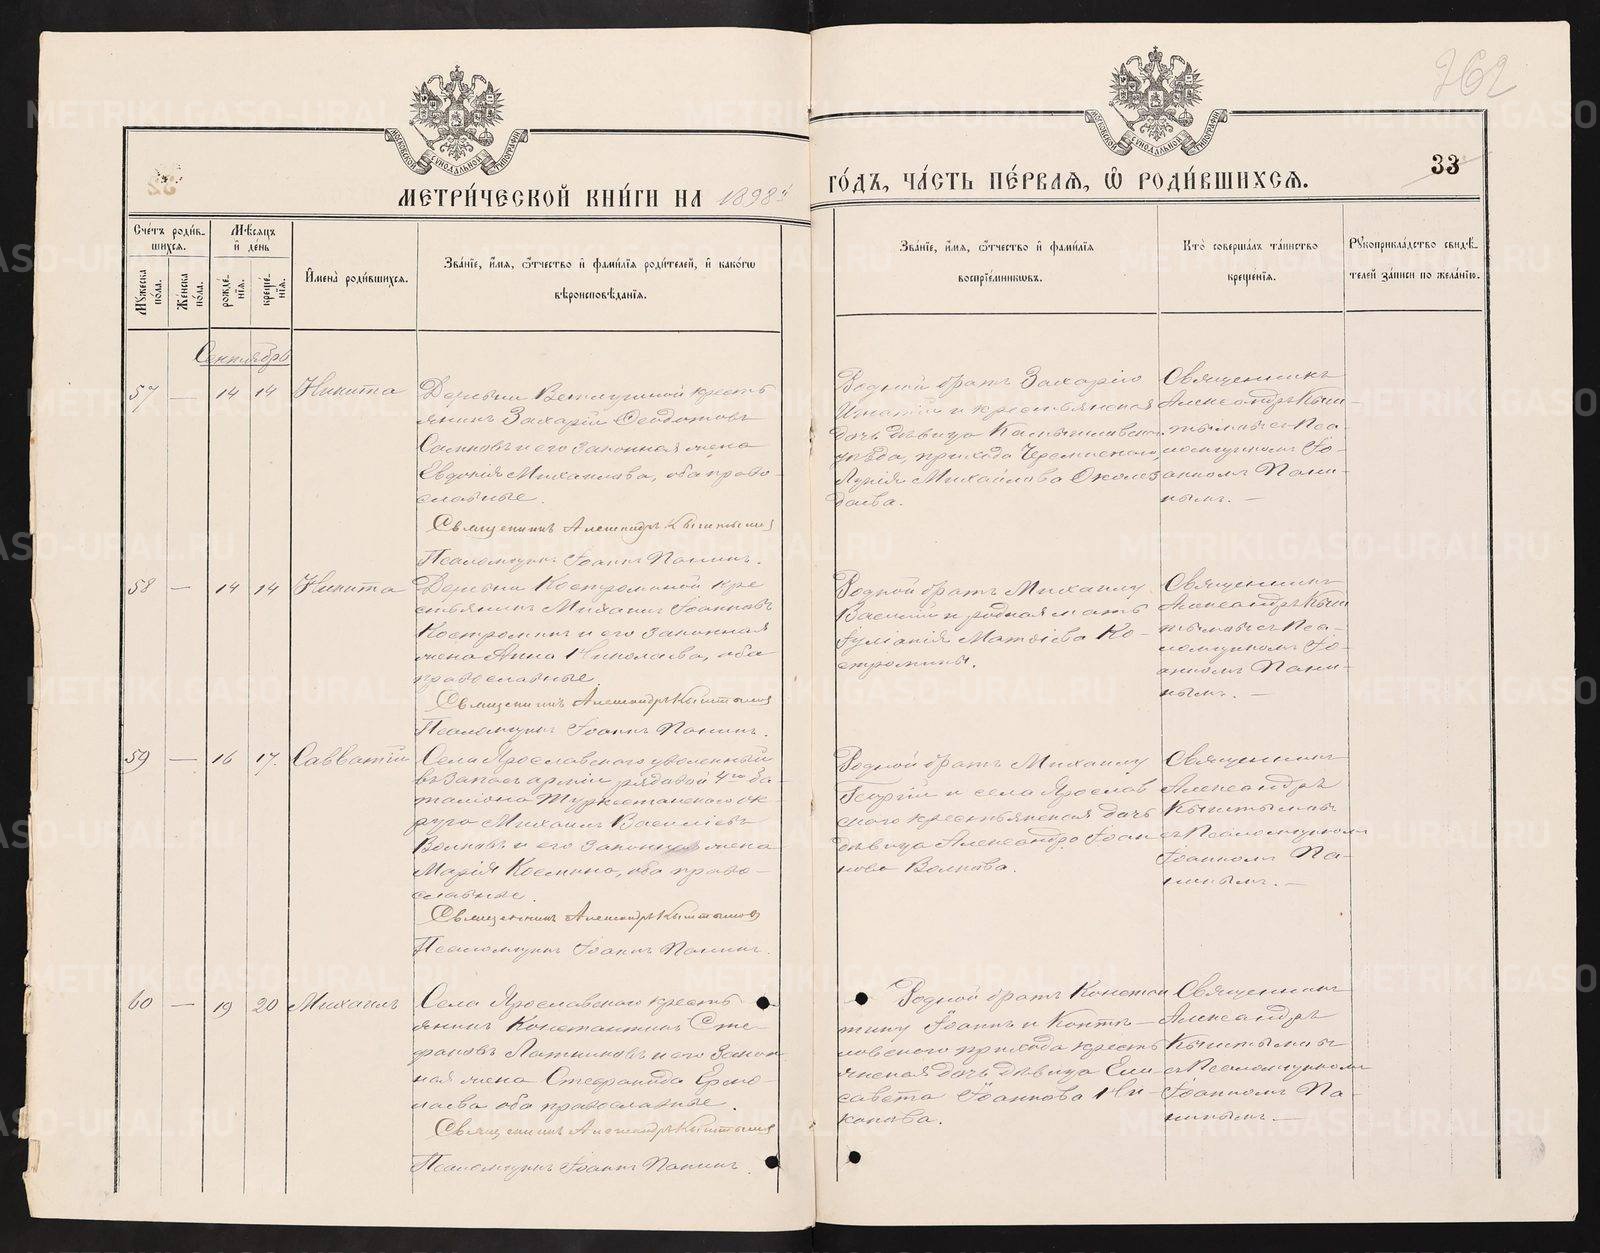 762
33
МОСКОВСКОЙ СУНОДАЛЬНОЙ ТИПОГРАФІИ
МОСКОВСКОЙ СУНОДАЛЬНОЙ ТИПОГРАФІИ
МЕТРИ́ЧЕСКОЙ КНИ́ГИ НА 1898й
ГО́ДЪ, ЧА́СТЬ ПЕ́РВАЯ, Ѡ РОДИ́ВШИХСЯ.
Сче́тъ роди́в-
шихся.
Мѣсяцъ
и де́нь
Му́жеска по́ла.
Же́нска по́ла.
рожде́-
нїя.
креще́-
нїя.
И́мена роди́вшихся.
Зва́нїе, и́мя, ѻ́тчество и фами́лїя роди́телей, и како́гѡ
вѣроисповѣ́данїя.
Зва́нїе, и́мя, ѻ́тчество и фами́лїя
воспрїе́мниковъ.
Кто̀ соверша́лъ та́инство
креще́нїя.
Рꙋкоприкла́дство свидѣ́-
телей за́писи по жела́нїю.
Сентябрь
57 — 14 14 Никита
Деревни крестъ
янинъ Захарій Ѳеодотовъ
и его законная жена
Евдокія Михаилова, оба право-
славные.
Священникъ Александръ Кыштымовъ
Псаломщикъ Іоаннъ Панинъ.
Родной братъ Захарію
Игнатій и крестьянская
дочь девица Камышловскаго
уѣзда, прихода
Михайлова
Священникъ
Александръ Кыш-
тымовъ съ Пса-
ломщикомъ Іо-
анномъ Пани-
нымъ. —
58 — 14 14 Никита
Деревни Костроминой кре
стьянинъ Михаилъ Іоанновъ
Костроминъ и его законная
жена Анна Николаева, оба
православные.
Священникъ Александръ Кыштымовъ
Псаломщикъ Іоаннъ Панинъ.
Родной братъ Михаилу
Василій и родная мать
Іуліанія Матѳіева Ко-
стромины.
Священникъ
Александръ Кыш
тымовъ съ Пса-
ломщикомъ Іо-
анномъ Пани-
нымъ. —
59 — 16 17. Савватій
Села Ярославскаго уволенный
въ запасъ арміи рядовой 4го ба-
таліона Туркестанскаго ок-
руга Михаилъ Василіевъ
Волковъ и его законная жена
Марія Космина, оба право-
славные.
Священникъ Александръ Кыштымовъ
Псаломщикъ Іоаннъ Панинъ.
Родной братъ Михаилу
Георгій и села Ярослав
скаго крестьянская дочь
девица Александра Іоан
нова Волкова.
Священникъ
Александръ
Кыштымовъ
съ Псаломщикомъ
Іоанномъ Па-
нинымъ. —
60 — 19 20 Михаилъ
Села Ярославскаго кресть
янинъ Константинъ Сте-
фановъ Латниковъ и его закон-
ная жена Стефанида Ермо-
лаева оба православные.
Священникъ Александръ Кыштымовъ
Псаломщикъ Іоаннъ Панинъ.
Родной братъ Констан
тину Іоаннъ и
ловскаго прихода кресть
янская дочь девица Ели-
савета Іоаннова Ни-
конова.
Священникъ
Александръ
Кыштымовъ
съ Псаломщикомъ
Іоанномъ Па-
нинымъ. —
METRIKI.GASO-URAL.RU